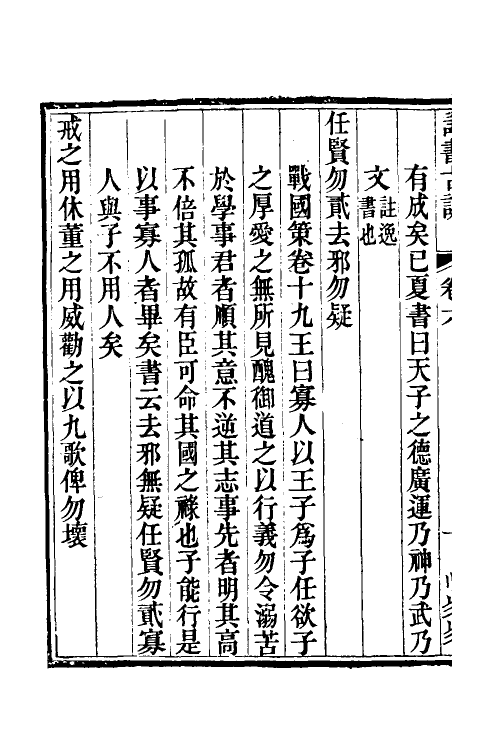 有成矣已夏書曰天子之德廣運乃神乃武乃
文註逸書也
任賢勿貳去邪勿疑
戰國策卷十九王曰寡人以王子爲子任欲子
之厚愛之無所見醜御道之以行義勿令溺苦
於學事君者順其意不逆其志事先者明其高
不倍其孤故有臣可命其國之祿也子能行是
以事寡人者畢矣書云去邪無疑任賢勿貳寡
人與子不用人矣
戒之用休董之用威勸之以九歌俾勿壞